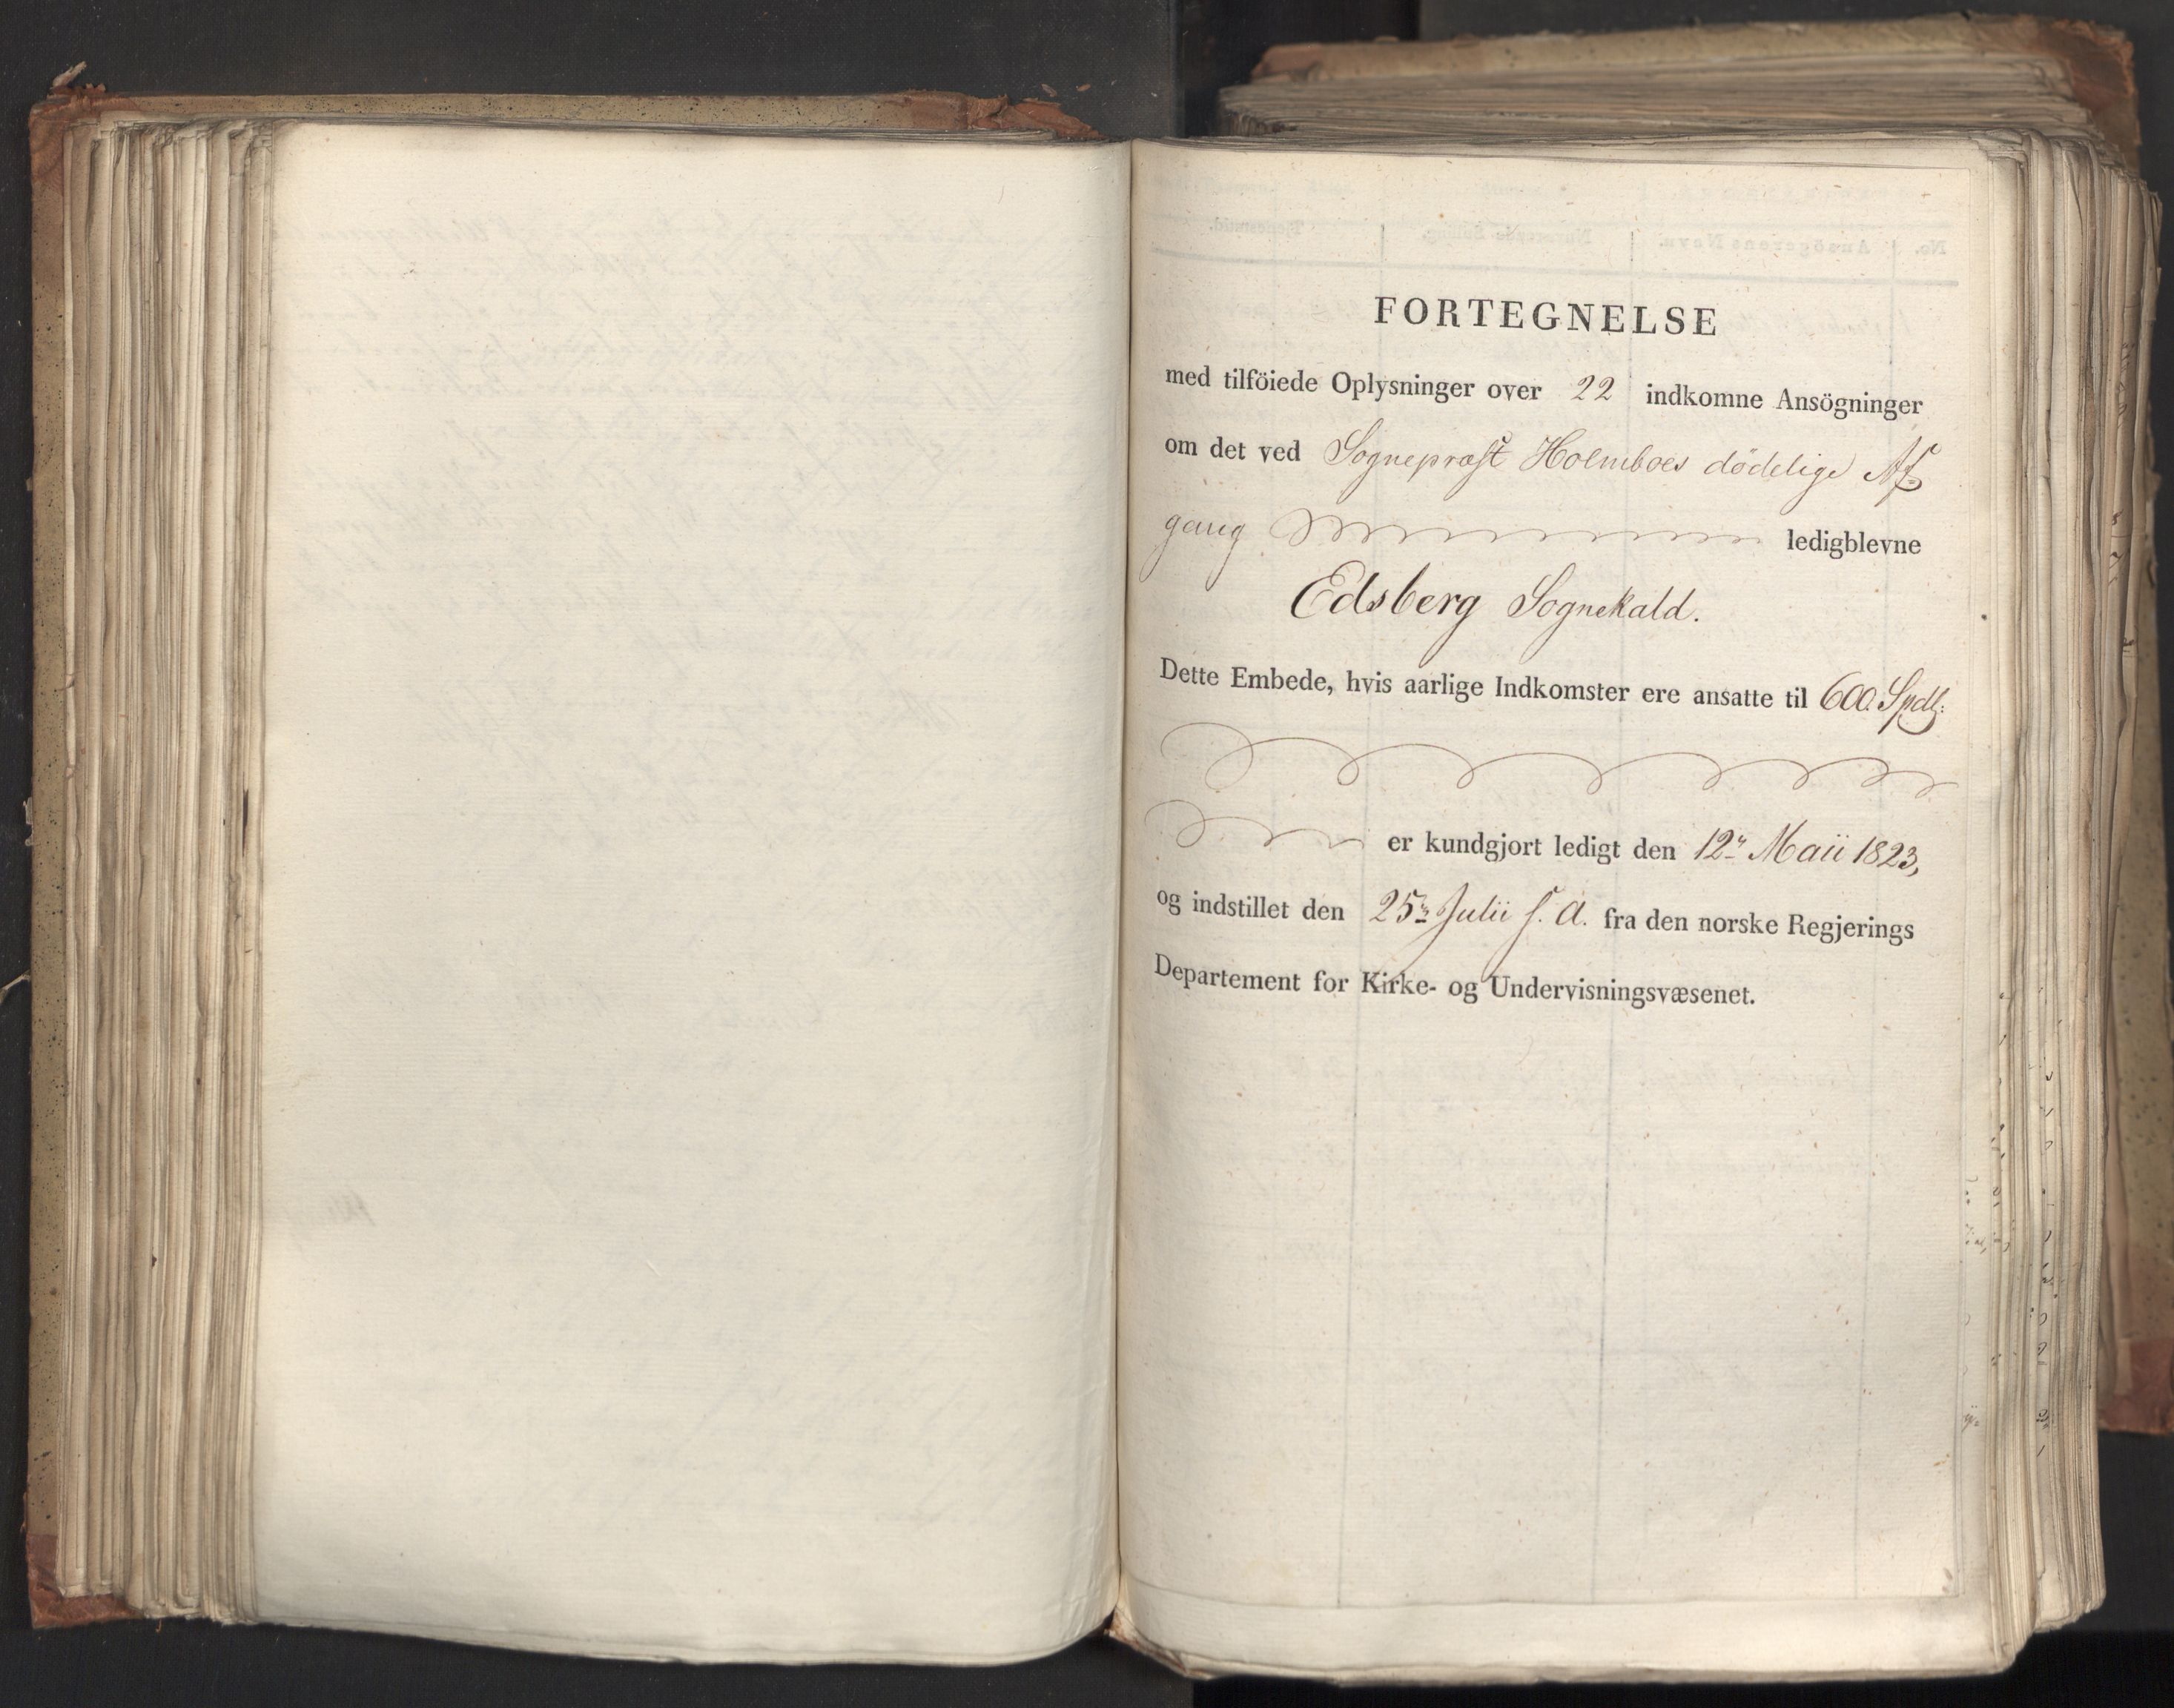 FORTEGNELSE
med tilföiede Oplysninger over 22 indkomne Ansögninger
om det ved Sognepræst Holmboes dödelige Af-
gang ledigblevne
Edsberg Sognekald.
Dette Embede, hvis aarlige Indkomster ere ansatte til 600. Spdlr:
er kundgjort ledigt den 12te Maii 1823,
og indstillet den 25de Julii s. A. fra den norske Regjerings
Departement for Kirke- og Undervisningsvæsenet.